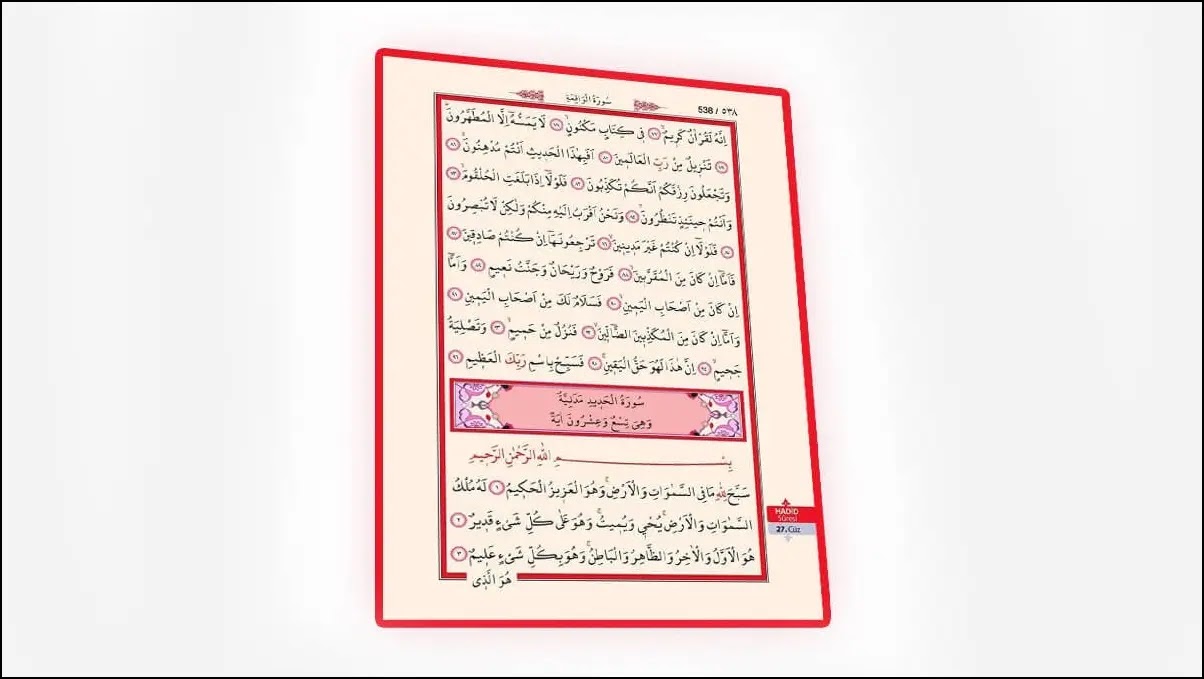 سُورَةُ الْوَاقِعَةِ
538 / ٥٣٨
اِنَّهُ لَقُرْاٰنٌ كَرِيمٌۙ ﴿٧٧﴾ فِى كِتَابٍ مَكْنُونٍۙ ﴿٧٨﴾ لَا يَمَسُّهُٓ اِلَّا الْمُطَهَّرُونَۜ
﴿٧٩﴾ تَنْزِيلٌ مِنْ رَبِّ الْعَالَمِينَ ﴿٨٠﴾ اَفَبِهٰذَا الْحَدِيثِ اَنْتُمْ مُدْهِنُونَۙ ﴿٨١﴾
وَتَجْعَلُونَ رِزْقَكُمْ اَنَّكُمْ تُكَذِّبُونَ ﴿٨٢﴾ فَلَوْلَٓا اِذَا بَلَغَتِ الْحُلْقُومَۙ ﴿٨٣﴾
وَاَنْتُمْ حِينَئِذٍ تَنْظُرُونَۙ ﴿٨٤﴾ وَنَحْنُ اَقْرَبُ اِلَيْهِ مِنْكُمْ وَلٰكِنْ لَا تُبْصِرُونَ
﴿٨٥﴾ فَلَوْلَٓا اِنْ كُنْتُمْ غَيْرَ مَدِينِينَۙ ﴿٨٦﴾ تَرْجِعُونَهَٓا اِنْ كُنْتُمْ صَادِقِينَ ﴿٨٧﴾
فَاَمَّٓا اِنْ كَانَ مِنَ الْمُقَرَّبِينَۙ ﴿٨٨﴾ فَرَوْحٌ وَرَيْحَانٌ وَجَنَّتُ نَعِيمٍ ﴿٨٩﴾ وَاَمَّٓا
اِنْ كَانَ مِنْ اَصْحَابِ الْيَمِينِۙ ﴿٩٠﴾ فَسَلَامٌ لَكَ مِنْ اَصْحَابِ الْيَمِينِ ﴿٩١﴾
وَاَمَّٓا اِنْ كَانَ مِنَ الْمُكَذِّبِينَ الضَّٓالِّينَۙ ﴿٩٢﴾ فَنُزُلٌ مِنْ حَمِيمٍۙ ﴿٩٣﴾ وَتَصْلِيَةُ
جَحِيمٍ ﴿٩٤﴾ اِنَّ هٰذَا لَهُوَ حَقُّ الْيَقِينِۚ ﴿٩٥﴾ فَسَبِّحْ بِاسْمِ رَبِّكَ الْعَظِيمِ ﴿٩٦﴾
سُورَةُ الْحَدِيدِ مَدَنِيَّةٌ
وَهِىَ تِسْعٌ وَعِشْرُونَ اٰيَةً
بِسْمِ اللّٰهِ الرَّحْمٰنِ الرَّحِيمِ
سَبَّحَ لِلّٰهِ مَا فِى السَّمٰوَاتِ وَالْاَرْضِۚ وَهُوَ الْعَزِيزُ الْحَكِيمُ ﴿١﴾ لَهُ مُلْكُ
السَّمٰوَاتِ وَالْاَرْضِۚ يُحْيِى وَيُمِيتُۚ وَهُوَ عَلٰى كُلِّ شَىْءٍ قَدِيرٌ ﴿٢﴾
هُوَ الْاَوَّلُ وَالْاٰخِرُ وَالظَّاهِرُ وَالْبَاطِنُۚ وَهُوَ بِكُلِّ شَىْءٍ عَلِيمٌ ﴿٣﴾
هُوَ الَّذِى
HADİD
Sûresi
27. Cüz